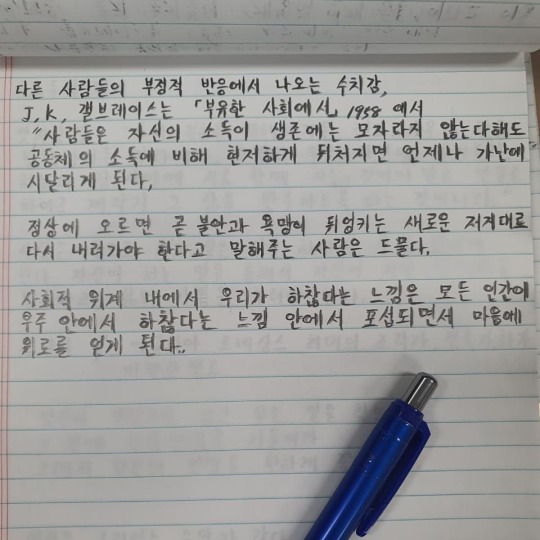 다른 사람들의 부정적 반응에서 나오는 수치감,
J, K, 갤브레이스는 「부유한 사회에서」 1958 에서
"사람들은 자신의 소득이 생존에는 모자라지 않는다해도
공동체의 소득에 비해 현저하게 뒤처지면 언제나 가난에"
시달리게 된다,
정상에 오르면 곧 불안과 욕망이 뒤엉키는 새로운 저지대로
다시 내려가야 한다고 말해주는 사람은 드물다,
사회적 위계 내에서 우리가 하찮다는 느낌은 모든 인간이
우주 안에서 하찮다는 느낌 안에서 포섭되면서 마음에
위로를 얻게 된다..